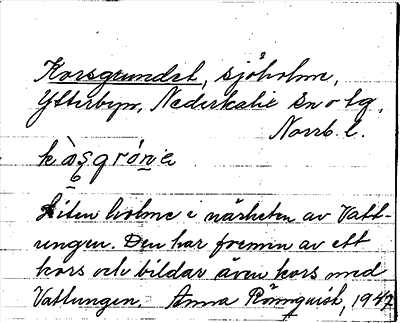 Korsgrundet, sjöholme,
Ytterbyn, Nederkalix sn o tg,
Norrb. l.
Liten holme i närheten av Vatt-
ungen. Den har formen av ett
kors och bildar även kors med
Vattungen. Anna Rönnqvist, 1947